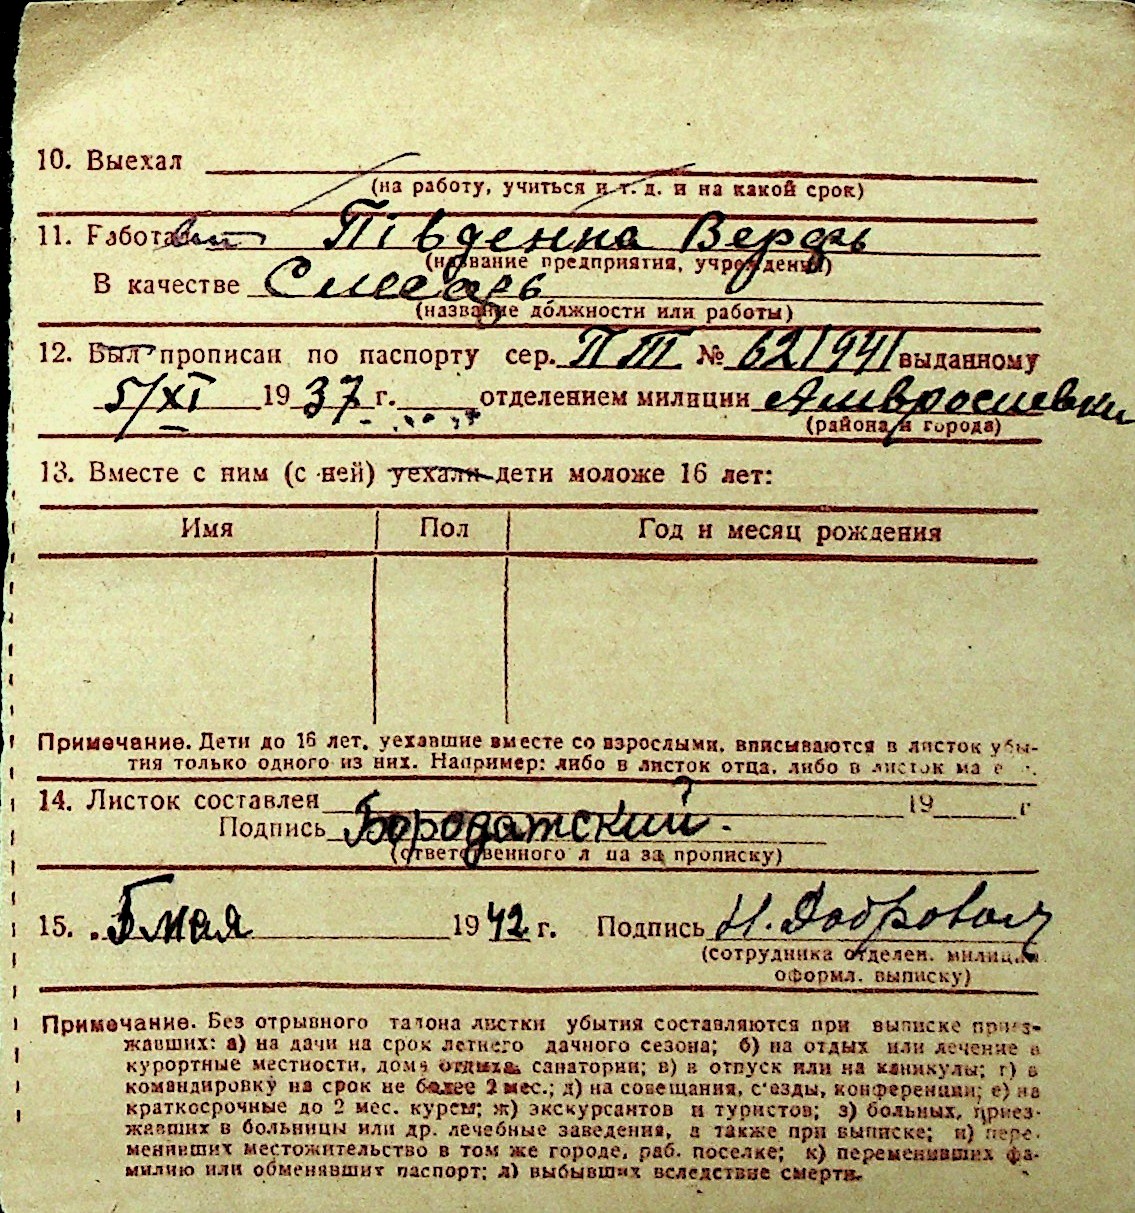 10. Выехал
(на работу, учиться и т. д. и на какой срок)
11. Работает Південна Верфь
(название предприятия, учреждения)
В качестве Слесарь
(название должности или работы)
12. Был прописан по паспорту сер. ПТ № 621941 выданному
5/XI 1937 г. отделением милиции Амвросиевки
(района и города)
13. Вместе с ним (с ней) уехали дети моложе 16 лет:
Имя Пол Год и месяц рождения
Примечание. Дети до 16 лет, уехавшие вместе со взрослыми, вписываются в листок убы-
тия только одного из них. Например: либо в листок отца, либо в листок
14. Листок составлен 19 г
Подпись Бородатский.
(ответственного лица за прописку)
15. 5 мая 1942 г. Подпись Н.
(сотрудника отделен. милиции
оформл. выписку)
Примечание. Без отрывного талона листки убытия составляются при выписке приез-
жавших: а) на дачи на срок летнего дачного сезона; б) на отдых или лечение в
курортные местности, дома отдыха, санатории; в) в отпуск или на каникулы; г) в
командировку на срок не более 2 мес.; д) на совещания, с'езды, конференции; е) на
краткосрочные до 2 мес. курсы; ж) экскурсантов и туристов; з) больных, приез-
жавших в больницы или др. лечебные заведения, а также при выписке; и) пере-
менивших местожительство в том же городе, раб. поселке; к) переменивших фа-
милию или обменявших паспорт; л) выбывших вследствие смерти.